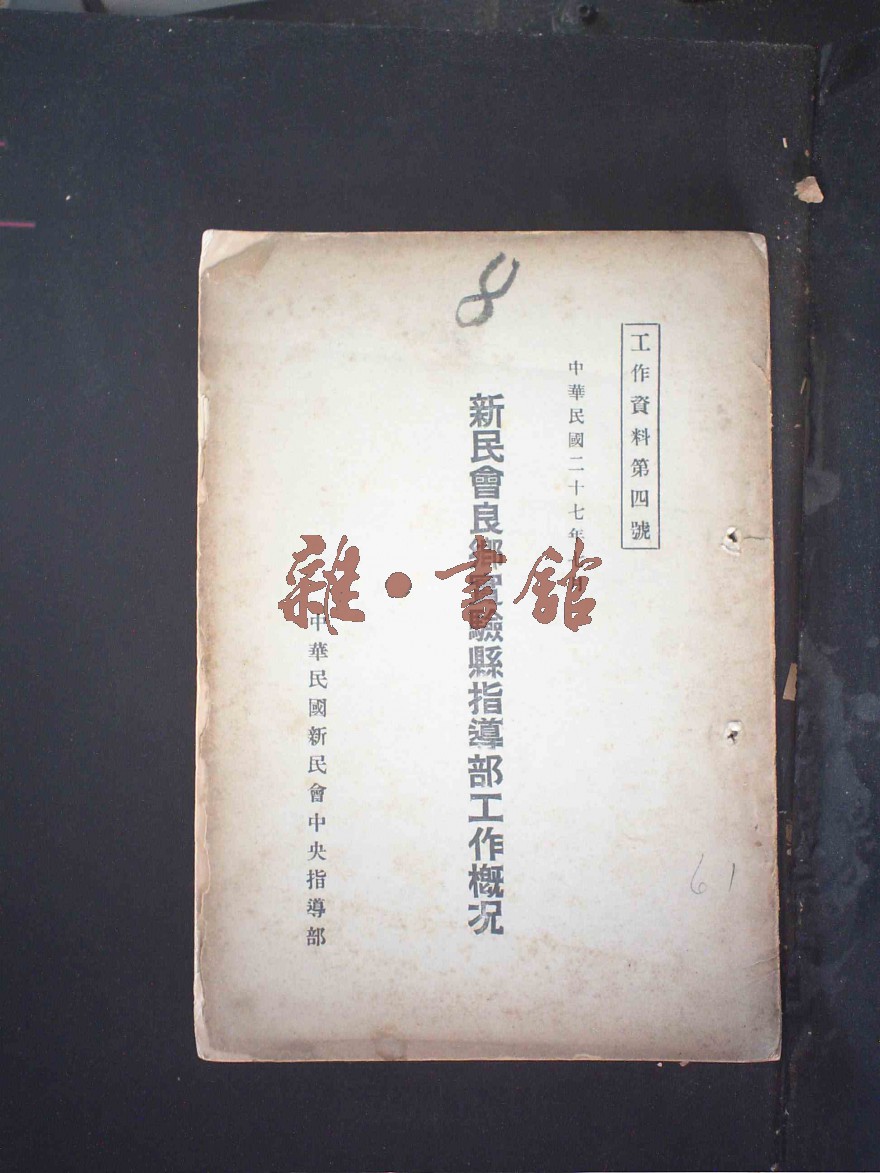 8
工作資料第四號
中華民國二十七年 月
新民會良鄉實驗縣指導部工作概况
中華民國新民會中央指導部
雜·書館
61